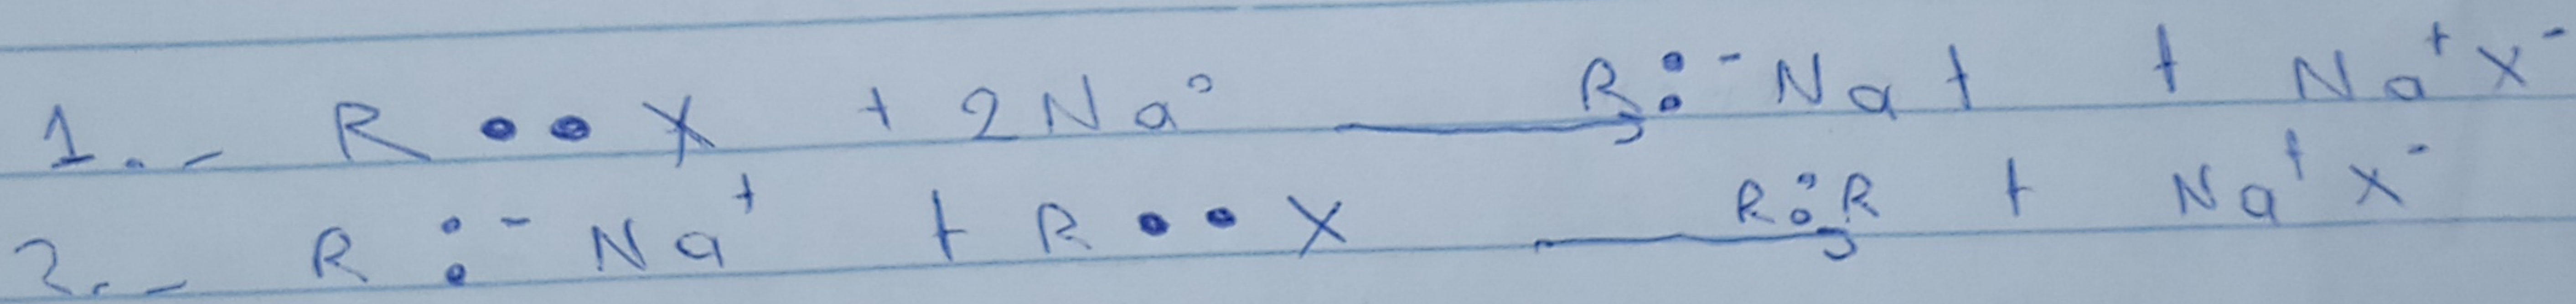 1.- R •• X + 2Na° → R:⁻Na+ + Na⁺X⁻
2.- R:⁻Na⁺ + R •• X → R:R + Na⁺X⁻